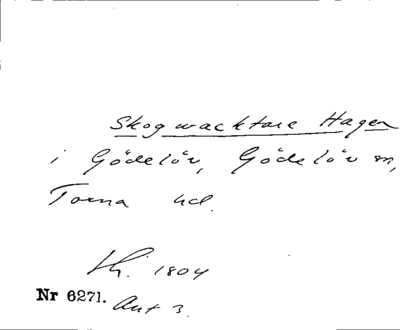 Skogwacktare Hagen
i Gödelöv, Gödelöv sn,
Torna hd.
Lh. 1804
Nr 6271. Avt 3.